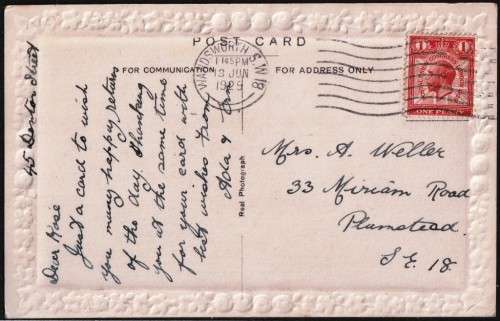 POST CARD
FOR COMMUNICATION
FOR ADDRESS ONLY
WANDSWORTH S.W.18
1145PM
19 JUN
1929
1 1
ONE PENNY
45 Denton Street
Dear Rose
Just a card to wish
you many happy returns
of the day. Thanking
you at the same time
for your card with
best wishes from
Ada &
Real Photograph
Mrs. A. Weller
33 Miriam Road
Plumstead.
S.E. 18.